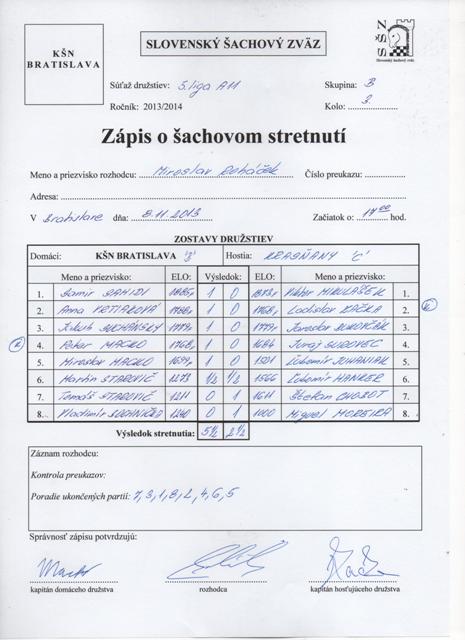 KŠN
BRATISLAVA
SLOVENSKÝ ŠACHOVÝ ZVÄZ
SŠZ
Slovenský šachový zväz
Súťaž družstiev: 5. liga A11
Skupina: B
Ročník: 2013/2014
Kolo: 3.
Zápis o šachovom stretnutí
Meno a priezvisko rozhodcu: Miroslav
Číslo preukazu:
Adresa:
V Bratislave dňa: 8.11.2013
Začiatok o: 17 00 hod.
ZOSTAVY DRUŽSTIEV
Domáci: KŠN BRATISLAVA 'B'
Hostia: KRASŇANY 'C'
Meno a priezvisko: ELO: Výsledok: ELO: Meno a priezvisko:
1. Samir SAHIDI 1 0 Viktor MIKULÁŠEK 1.
2. Anna 1 0 Ladislav KAČKA 2. K
3. Jakub 1 0 Jaroslav 3.
K 4. Peter MACKO 1768 1 0 1684 Juraj SUROVEC 4.
5. Miroslav MACKO 1699 1 0 1501 Ľubomír JUHANIAK 5.
6. Martin STAROVIČ 1273 1/2 1/2 1566 Ľubomír HANKER 6.
7. Tomáš STAROVIČ 1211 0 1 1611 Štefan CHOBOT 7.
8. Vladimír 0 1 1000 Miguel MOREIRA 8.
Výsledok stretnutia: 5 1/2 2 1/2
Záznam rozhodcu:
Kontrola preukazov:
Poradie ukončených partií: 7, 3, 1, 8, 2, 4, 6, 5
Správnosť zápisu potvrdzujú:
kapitán domáceho družstva
rozhodca
kapitán hosťujúceho družstva